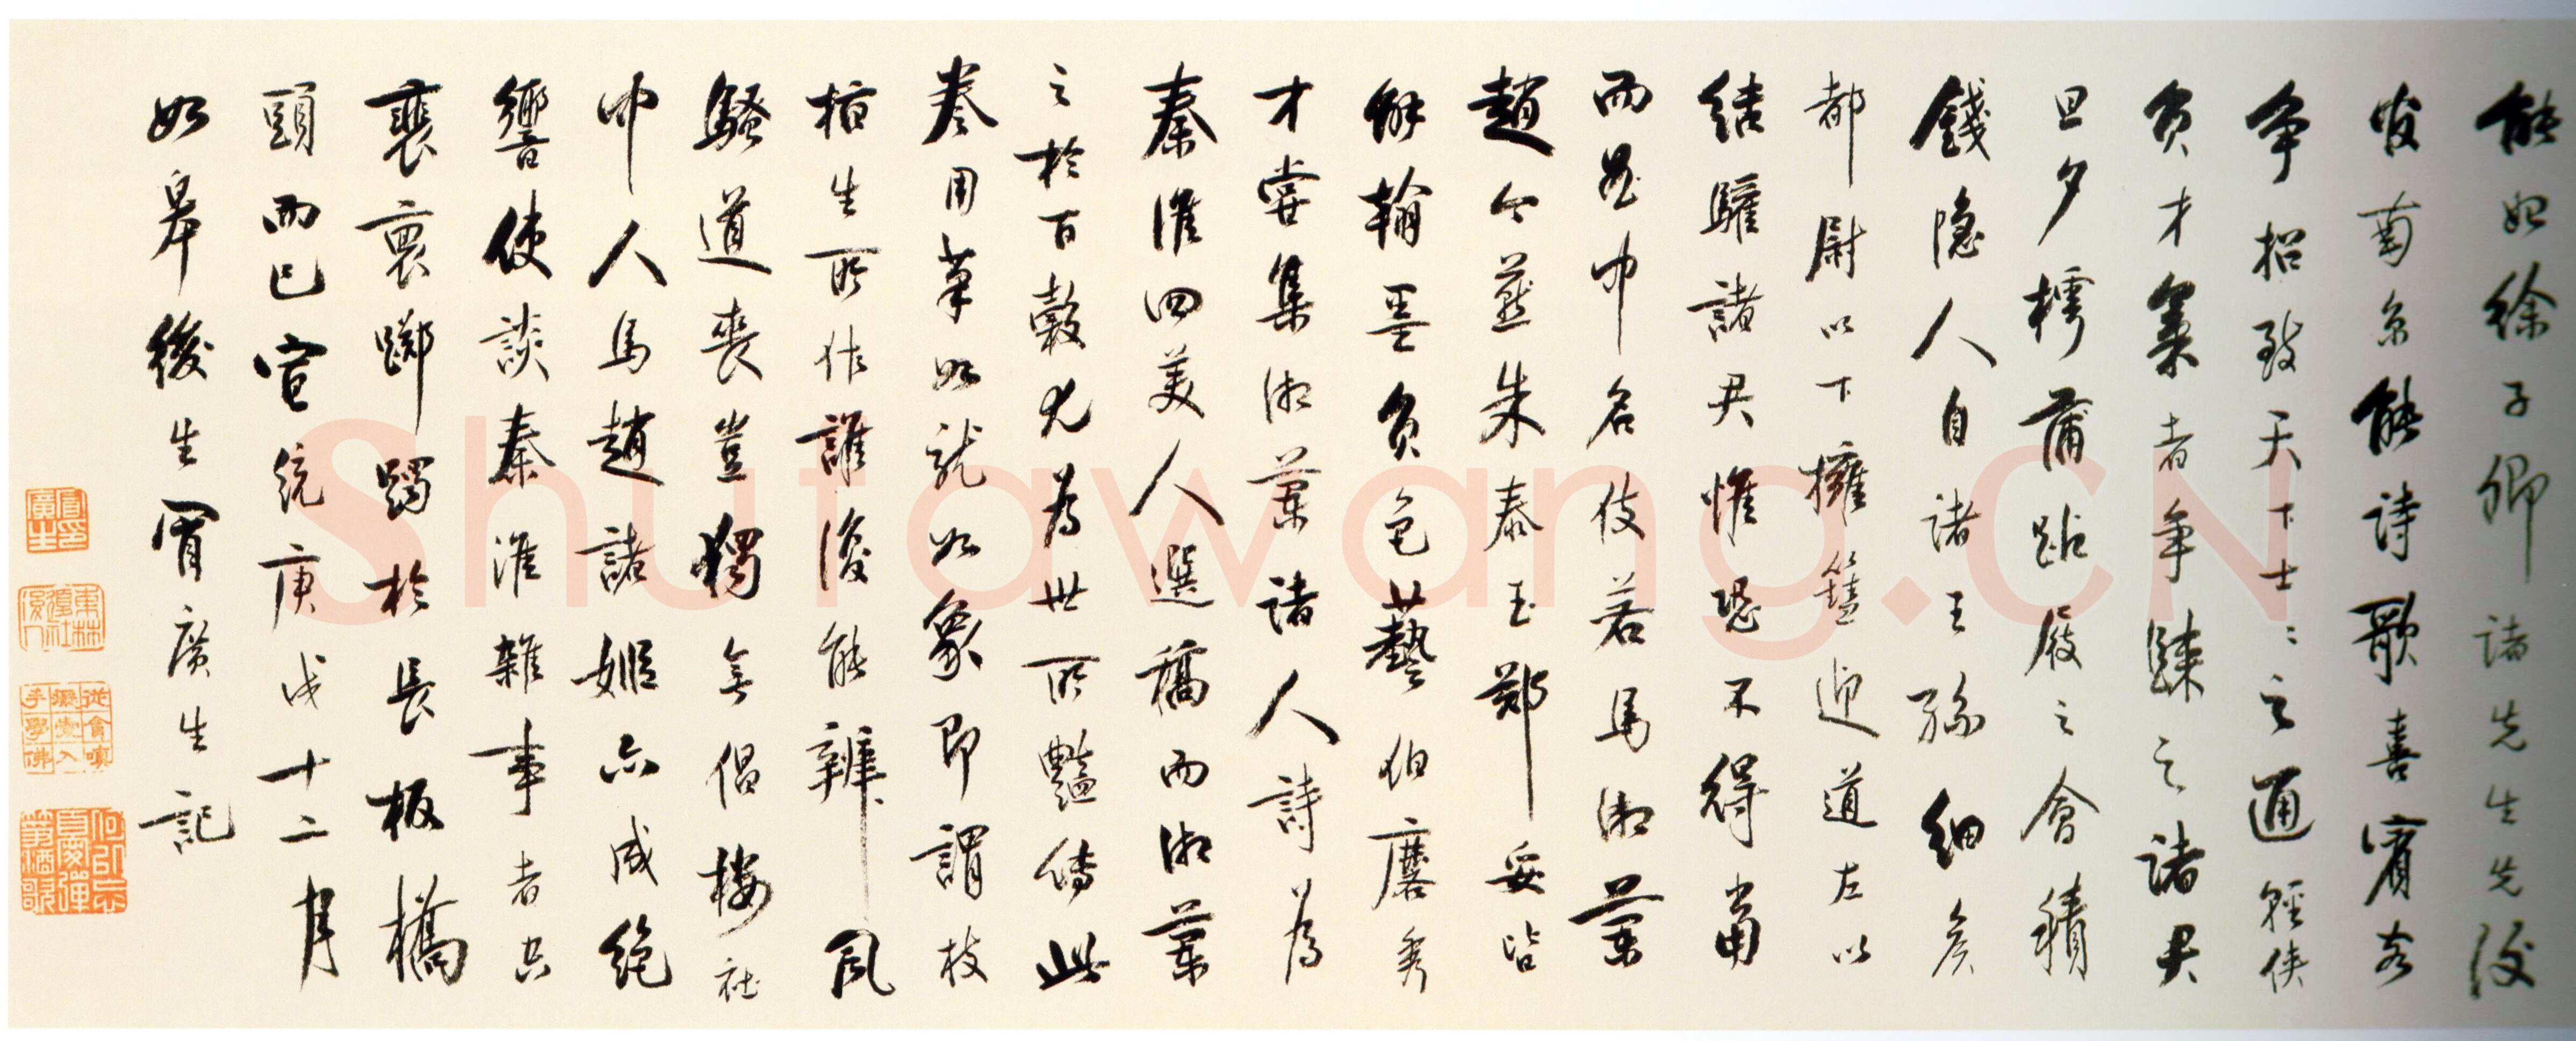 能如徐子卿諸先生先後
官南京能詩歌喜賓客
爭招致天下士士之通輕俠
負才氣者爭歸之諸君
旦夕樗蒲跕屐之會積
錢隱人自諸王孫細侯
都尉以下擁篲迎道左以
結驩諸君惟恐不得當
而島中名伎若馬湘蘭
趙今燕朱泰玉鄭妥皆
解翰墨負色藝伯麐秀
才嘗集湘蘭諸人詩為
秦淮四美人選稿而湘蘭
之於百穀尤為世所豔傳此
卷用筆如龍如象即謂枝
指生所作誰復能辨風
騷道喪豈獨無倡樓社
中人馬趙諸姬亦成絕
響使談秦淮雜事者共
裴裹躑躅於長板橋
頭而已宣統庚戌十二月
如皋後生冒廣生記
冒廣生印
東林復社後人
從貪嗔癡愛入手學佛